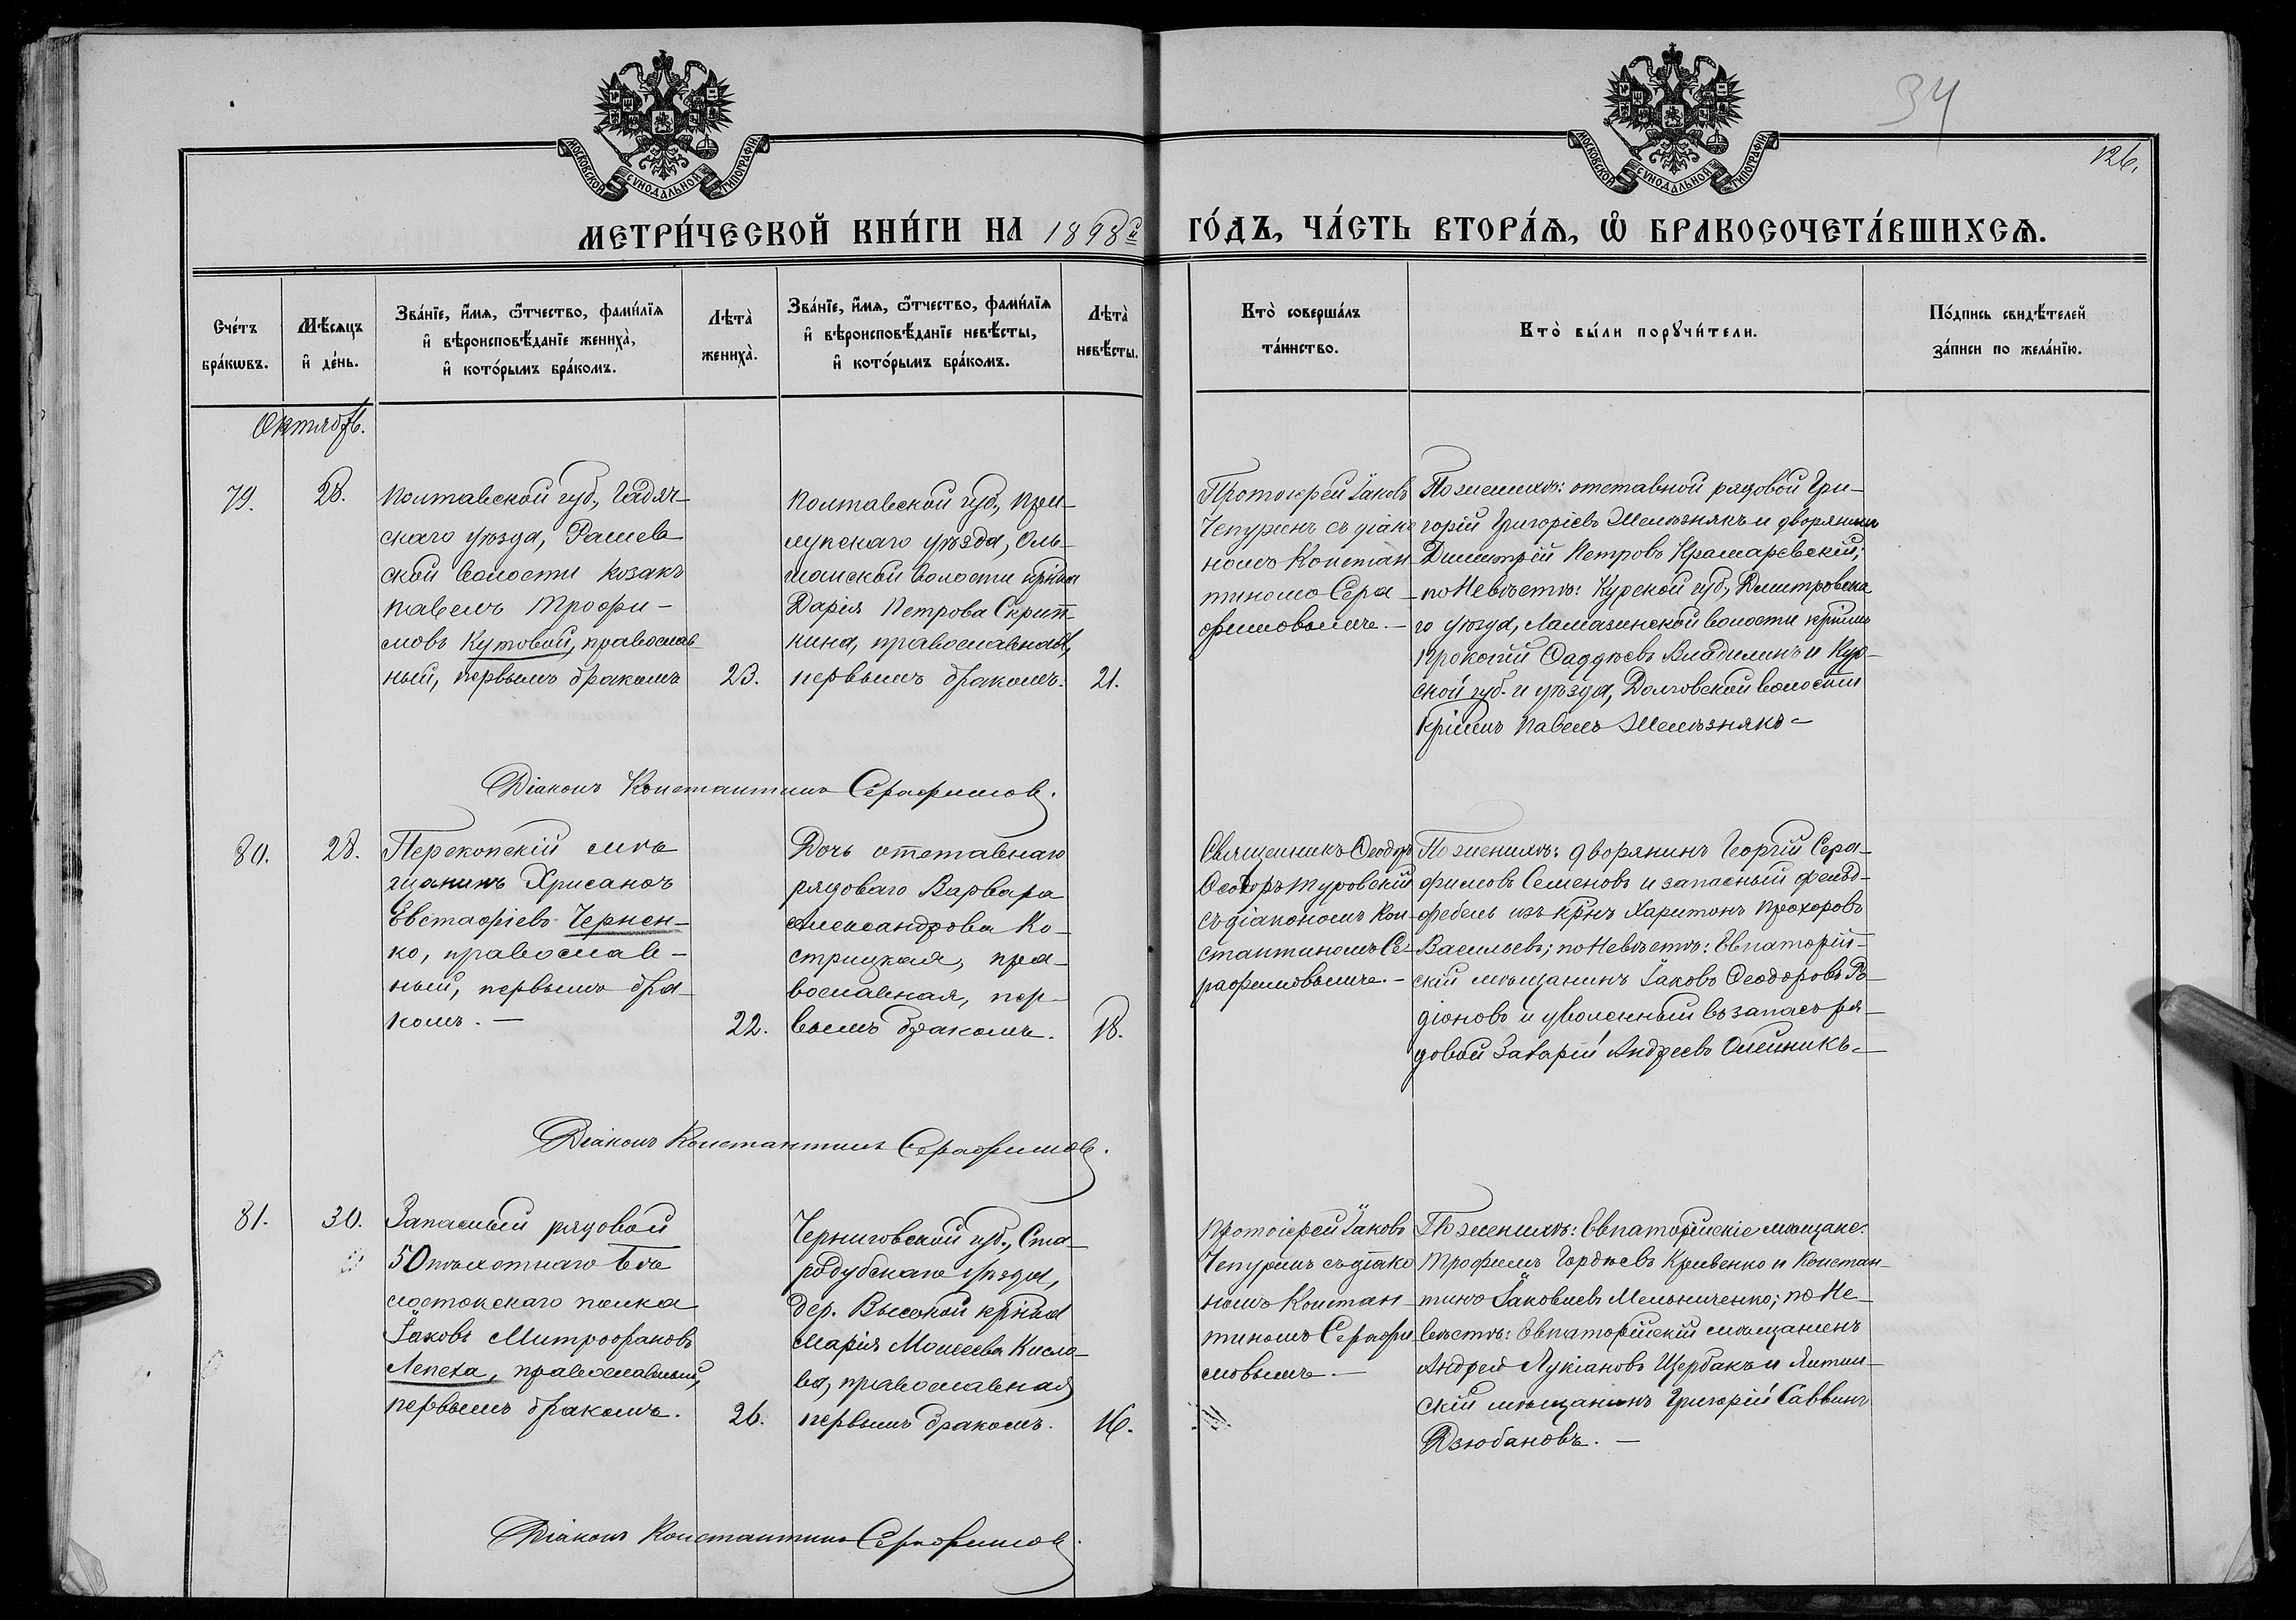 МОСКОВСКОЙ СѴНОДАЛЬНОЙ ТИПОГРАФІИ.
МОСКОВСКОЙ СѴНОДАЛЬНОЙ ТИПОГРАФІИ.
34
126.
МЕТРИ́ЧЕСКОЙ КНИ́ГИ НА 1898й ГО́ДЪ, ЧА́СТЬ ВТОРА́Ѧ, Ѡ҆ БРАКОСОЧЕТА́ВШИХСѦ.
Сче́тъ
бра́кѡвъ.
Мѣ́сяцъ
и҆ де́нь.
Зва́нїе, и҆́мѧ, ѻ҆́тчество, фами́лїѧ
и҆ вѣроисповѣ́данїе жениха̀,
и҆ кото́рымъ бра́комъ.
Лѣта̀
жениха̀.
Зва́нїе, и҆́мѧ, ѻ҆́тчество, фами́лїѧ
и҆ вѣроисповѣ́данїе невѣ́сты,
и҆ кото́рымъ бра́комъ.
Лѣта̀
невѣ́сты.
Кто̀ соверша́лъ
та́инство.
Кто̀ бы́ли порꙋчи́тели.
По́дпись свидѣ́телей
за́писи по жела́нїю.
Октябрь.
79.
28.
Полтавской губ., Гадяч-
скаго уѣзда, Рашев-
ской волости козакъ
Павелъ Трофи-
мовъ Кутовой, православ-
ный, первымъ бракомъ
23.
Полтавской губ., При-
лукскаго уѣзда, Оль-
шанской волости кр͠нка
Дарія Петрова Скрип-
кина, православная,
первымъ бракомъ.
21.
Протоіерей Іаковъ
Чепуринъ съ діако
номъ Констан
тиномъ Сера
фимовымъ.—
По женихѣ: отставной рядовой Гри-
горій Григоріевъ Желѣзнякъ и дворянинъ
Димитрій Петровъ Крамаревскій;
по Невѣстѣ: Курской губ., Дмитровска
го уѣзда, волости кр͠нинъ
Прокопій Фаддѣевъ и Кур-
ской губ. и уѣзда, Долговской волости
кр͠нинъ Павелъ Желѣзнякъ—
Діаконъ Константинъ Серафимовъ.
80.
28.
Перекопскій мѣ
щанинъ Хрисанѳъ
Евстафіевъ Чернен-
ко, православ-
ный, первымъ бра-
комъ.—
22.
Дочь отставнаго
рядоваго Варвара
Александрова Ко-
стрицкая, пра-
вославная, пер-
вымъ бракомъ.
18.
Священникъ Ѳеодоръ
Ѳеодоръ Туровскій
съ діакономъ Кон-
стантиномъ Се-
рафимовымъ.—
По женихѣ: дворянинъ Георгій Сера-
фимовъ Семеновъ и запасный фельд-
фебель изъ кр͠нъ Харитонъ Прохоровъ
Васильевъ; по Невѣстѣ: Евпаторій-
скій мѣщанинъ Іаковъ Ѳеодоровъ Ро-
діоновъ и уволенный въ запасъ ря-
довой Захарій Андреевъ Олейникъ.—
Діаконъ Константинъ Серафимовъ.
81.
30.
Запасный рядовой
50 пѣхотнаго Бѣ
лостокскаго полка
Іаковъ Митрофановъ
Лепеха, православный,
первымъ бракомъ.
26.
Черниговской губ., Ста-
родубскаго уѣзда,
дер. Высокой кр͠нка
Марія Моисеева Кисле-
ва, православная
первымъ бракомъ.
16.
Протоіерей Іаковъ
Чепуринъ съ діако
номъ Констан-
тиномъ Серафи
мовымъ.—
По женихѣ: Евпаторійскіе мѣщане:
Трофимъ Гордѣевъ Кривенко и Констан-
тинъ Іаковлевъ Мельниченко; по Не-
вѣстѣ: Евпаторійскій мѣщанинъ
Андрей Лукіановъ Щербакъ и Ялтин-
скій мѣщанинъ Григорій Саввинъ
Дзюбановъ.—
Діаконъ Константинъ Серафимовъ.